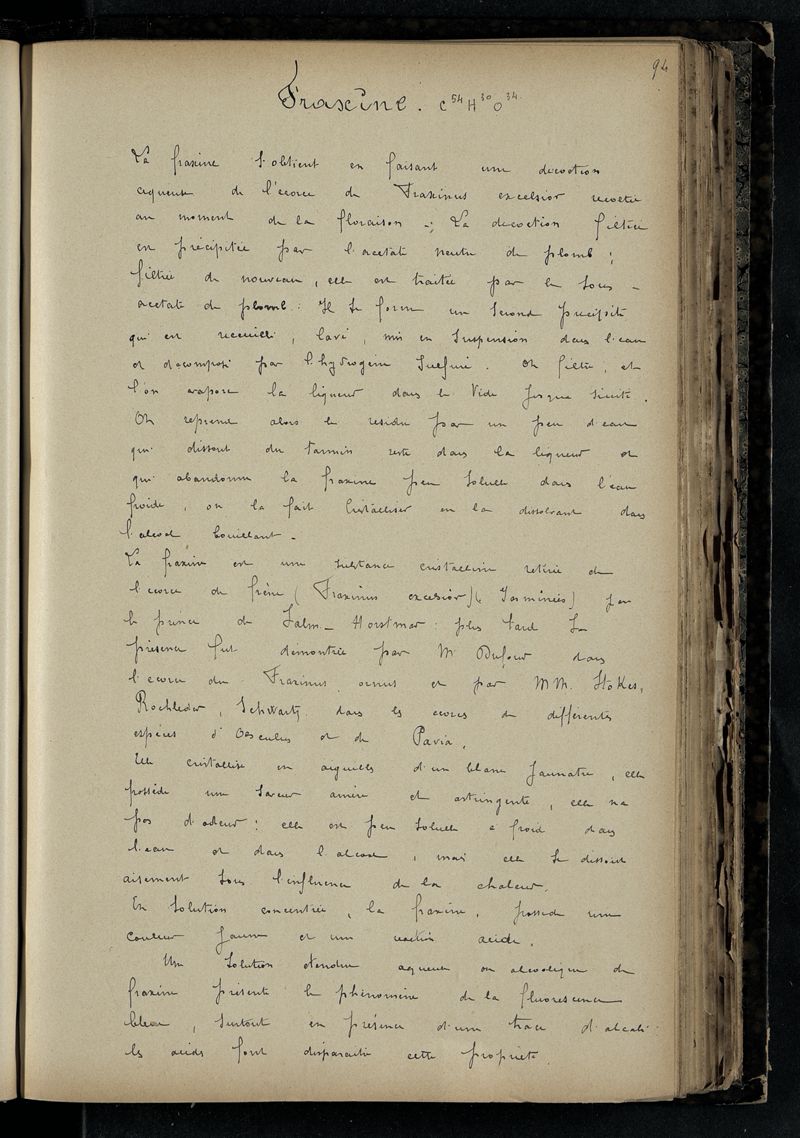 94
Fraxine. C⁵⁴H³⁰O³⁴.
La fraxine s'obtient en faisant une decoction
aqueuse de l'ecorce de Fraxinus excelsior recoltée
au moment de la floraison -; La decoction filtrée
est précipitée par l'acetate neutre de plomb ;
filtrée de nouveau, elle est traitée par le sous -
acetate de plomb : Il se forme un second précipité
qui est recueilli, lavé, mis en suspension dans l'eau
et decomposé par l'hydrogène sulfuré. On filtre, et
l'on evapore la liqueur dans le vide jusque siccité.
On reprend alors le residu par un peu d'eau
qui dissout du tannin resté dans la liqueur et
qui abandonne la fraxine peu soluble dans l'eau
froide, on la fait cristalliser en la dissolvant dans
l'alcool bouillant -
La fraxine est une substance cristalline retirée de
l'ecorce de frêne (Fraxinus excelsior) (Jasminées) par
le prince de Salm - Horstmar : plus tard sa
présence fut demontrée par M. Dufour dans
l'ecorce du Fraxinus ornus et par MM. Stokes,
Rochleder, Schwartz dans les ecorces de différentes
espèces d'Oesculus et de Pavia.
Elle cristallise en aiguilles d'un blanc jaunatre, elle
possède une saveur amère et astringente, elle na
pas d'odeur : elle est peu soluble a froid dans
l'eau et dans l'alcool, mais elle se dissout
aisement sous l'influence de la chaleur.
En solution concentrée, la fraxine, possède une
couleur jaune et une reaction acide.
Une solution etendue aqueuse ou alcoolique de
fraxine présente le phénomène de la fluorescence
bleue, surtout en présence d'une trace d'alcali
les acides font disparaitre cette propriété.